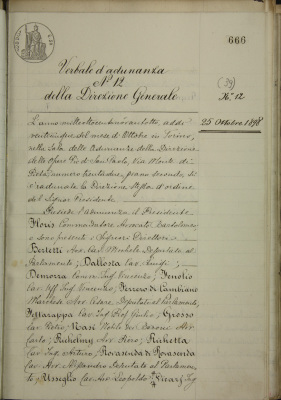 666
Verbale d'adunanza
N° 12
della Direzione Generale
(39)
N. 12
25 Ottobre 1898
L'anno milleottocentonovantotto, addì
venticinque del mese di Ottobre in Torino,
nella Sala delle Adunanze della Direzione
delle Opere Pie di San Paolo, Via Monte di
Pietà, numero trentadue, piano secondo, si
è radunata la Direzione stessa d'ordine
del Signor Presidente.
Presiede l'adunanza il Presidente
Floris Commendatore Avvocato Bartolomeo
e sono presenti i Signori Direttori:
Bertetti Avv. Cav. Michele Deputato al
Parlamento; Dallosta Cav. Luigi;
Demorra Comm. Ing. Vincenzo; Fenolio
Cav. Uff. Ing. Vincenzo; Ferrero di Cambiano
Marchese Avv. Cesare Deputato al Parlamento;
Fettarappa Cav. Ing. Prof. Giulio; Grosso
Cav. Pietro; Nasi Nobile dei Baroni Avv.
Carlo; Avv. Piero; Richetta
Cav. Ing. Arturo; Rovasenda di Rovasenda
Cav. Avv. Alessandro Deputato al Parlamen-
to; Usseglio Cav. Avv. Leopoldo; Vicarj Ing.